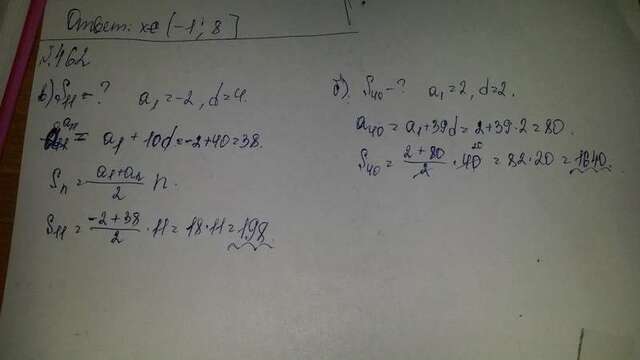 Ответ: x∈(-1; 8]
№462
в) S₁₁ - ? a₁ = -2, d = 4.
a₁₁ = a₁ + 10d = -2+40 = 38.
Sₙ = (a₁+aₙ)/2 · n.
S₁₁ = (-2+38)/2 · 11 = 18·11 = 198
б) S₄₀ - ? a₁ = 2, d = 2.
a₄₀ = a₁+39d = 2+39·2 = 80.
S₄₀ = (2+80)/2 · 40 ²⁰ = 82·20 = 1640